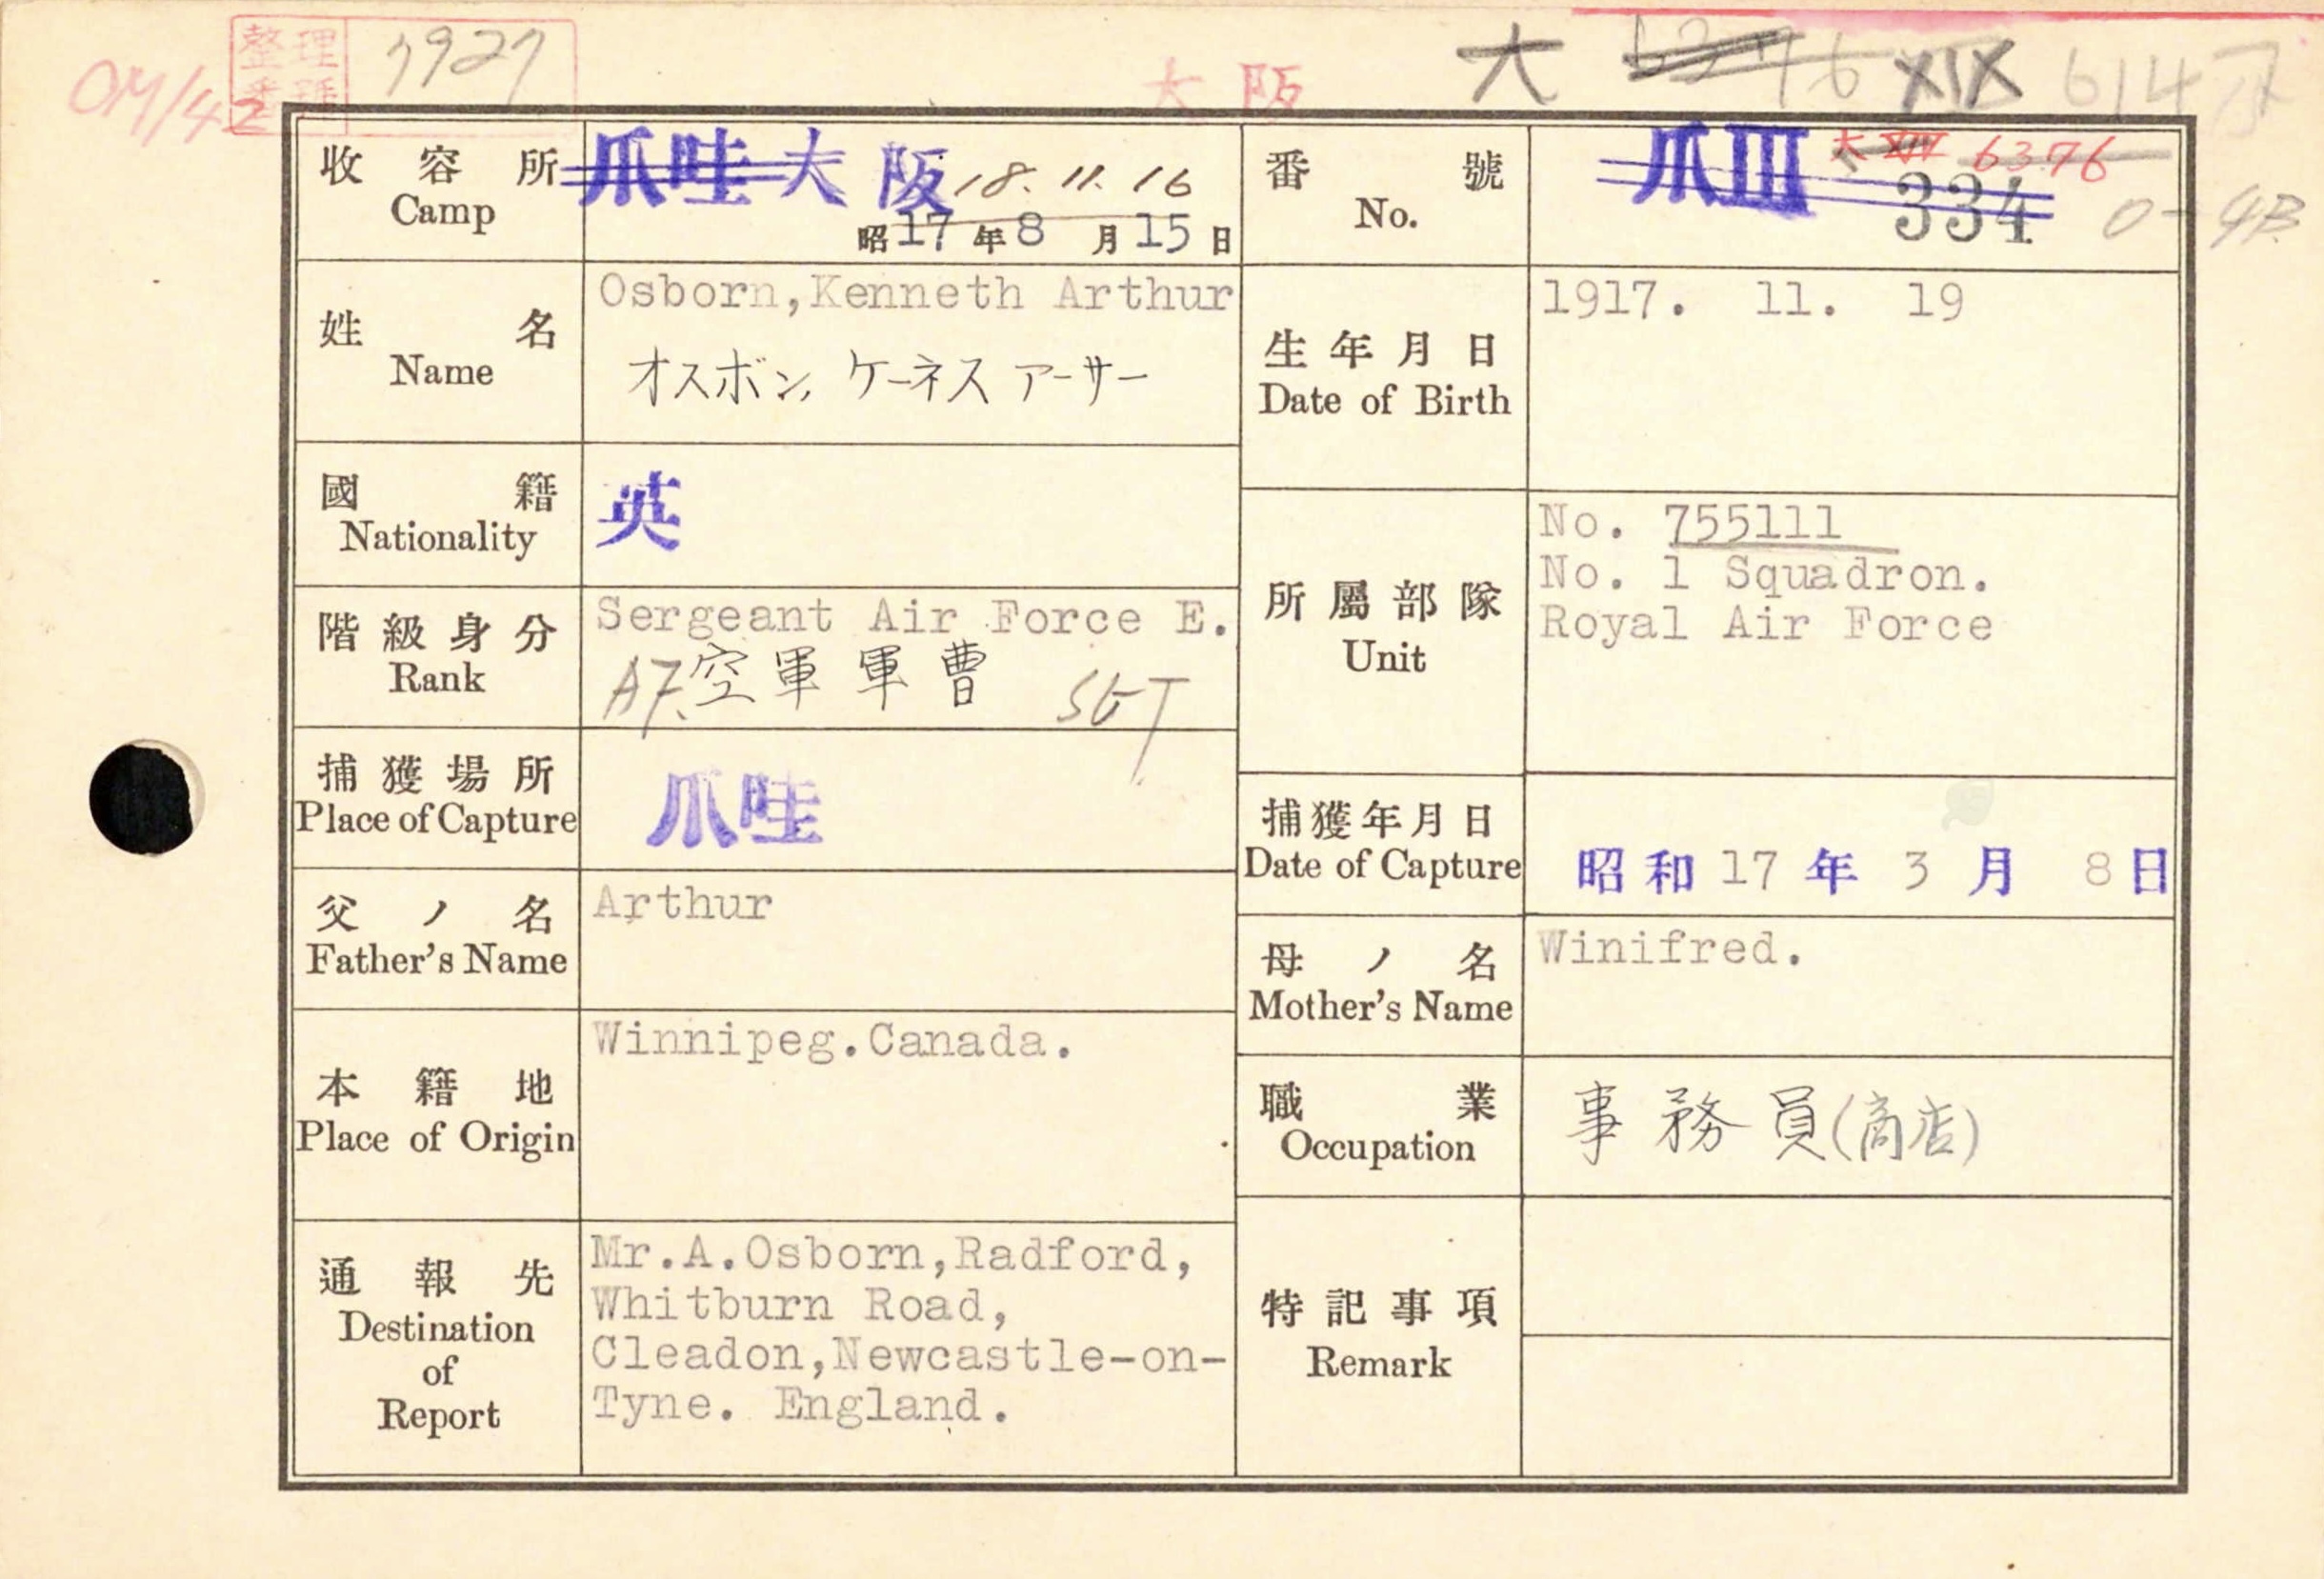 OM/42
整理番號 7927
大阪
大 XIX 614
收容所 Camp
爪哇 大阪 18. 11. 16
昭17年8月15日
番號 No.
爪III 大 6376
334
姓名 Name
Osborn,Kenneth Arthur
オスボン, ケーネス アーサー
生年月日 Date of Birth
1917. 11. 19
國籍 Nationality
英
所屬部隊 Unit
No. 755111
No. 1 Squadron.
Royal Air Force
階級身分 Rank
Sergeant Air Force E.
AF. 空軍軍曹 SGT
捕獲場所 Place of Capture
爪哇
捕獲年月日 Date of Capture
昭和17年3月8日
父ノ名 Father's Name
Arthur
母ノ名 Mother's Name
Winifred.
本籍地 Place of Origin
Winnipeg.Canada.
職業 Occupation
事務員(商店)
通報先 Destination of Report
Mr.A.Osborn,Radford,
Whitburn Road,
Cleadon,Newcastle-on-
Tyne. England.
特記事項 Remark